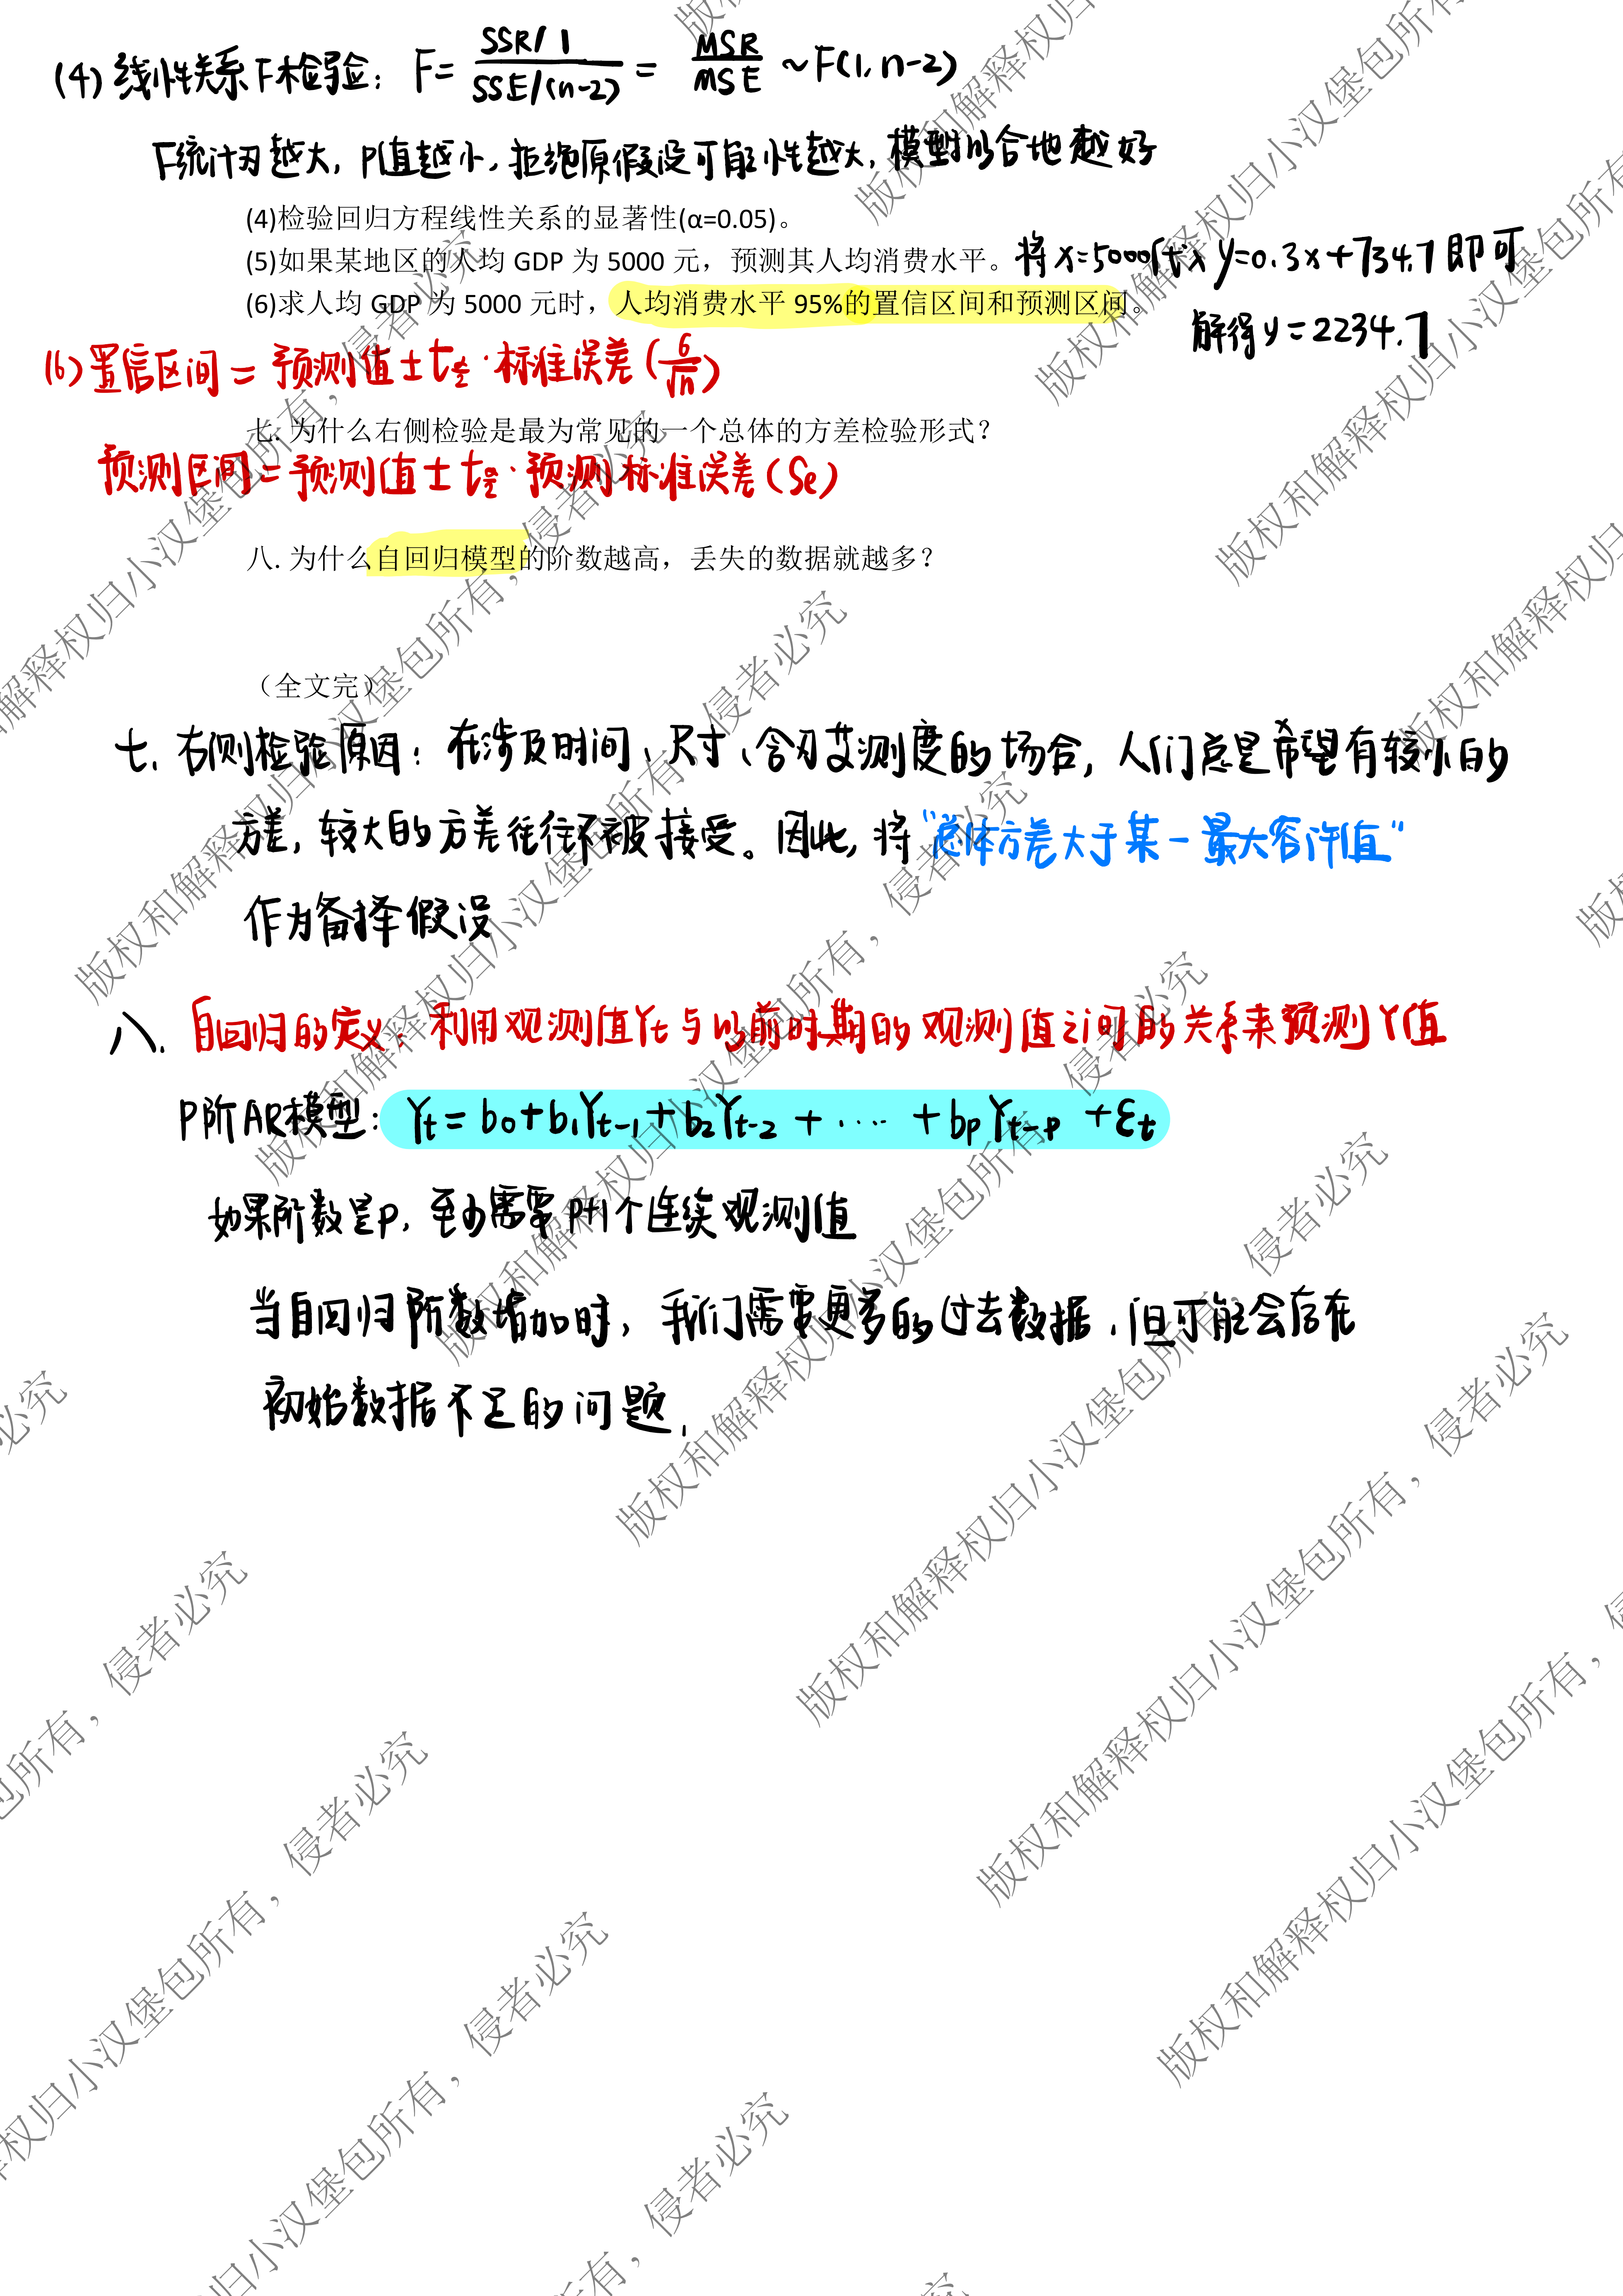 (4) 线性关系F检验: F= SSR/1 / SSE/(n-2) = MSR / MSE ~F(1, n-2)
F统计量越大, P值越小, 拒绝原假设可能性越大, 模型拟合地越好
(4)检验回归方程线性关系的显著性(α=0.05)。
(5)如果某地区的人均 GDP 为 5000 元，预测其人均消费水平。 将x=5000代入 y=0.3x+734.7 即可
(6)求人均 GDP 为 5000 元时，人均消费水平 95%的置信区间和预测区间。
解得 y=2234.7
(6) 置信区间 = 预测值 ± t α/2 · 标准误差 (σ/√n)
七. 为什么右侧检验是最为常见的一个总体的方差检验形式?
预测区间 = 预测值 ± t α/2 · 预测标准误差 (Se)
八. 为什么自回归模型的阶数越高，丢失的数据就越多?
（全文完）
七. 右侧检验原因: 在涉及时间、尺寸、含量测度的场合, 人们总是希望有较小的
方差, 较大的方差往往不被接受。因此, 将“总体方差大于某一最大容许值”
作为备择假设
八. 自回归的定义: 利用观测值Yt与以前时期的观测值之间的关系来预测Y值
P阶AR模型: Yt = b0+b1Yt-1+b2Yt-2+····+bpYt-p+εt
如果阶数是p, 至少需要P+1个连续观测值
当自回归阶数增加时, 我们需要更多的过去数据, 但可能会存在
初始数据不足的问题,
版权和解释权归小汉堡包所有，侵者必究